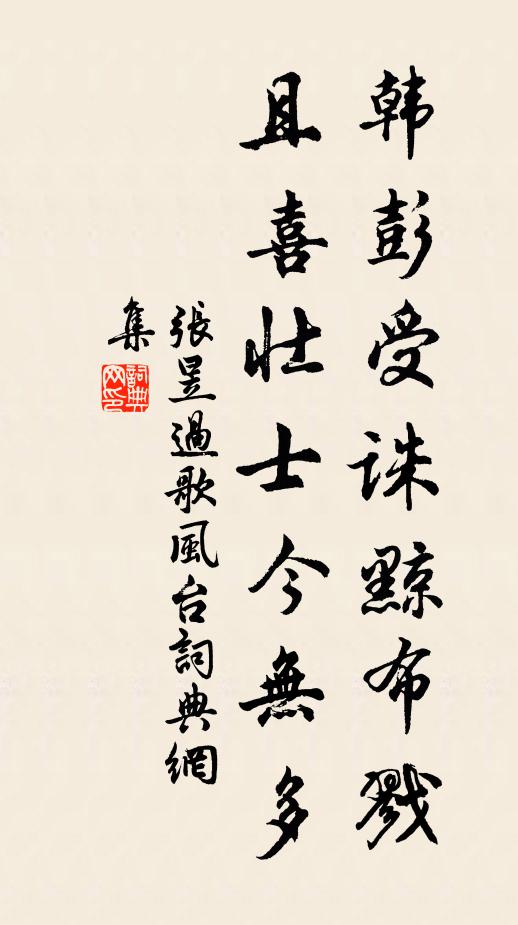 韩彭受誅黥布戮
且喜壮士今無多
張昱過歌風台詞典網
集
詞典
网印